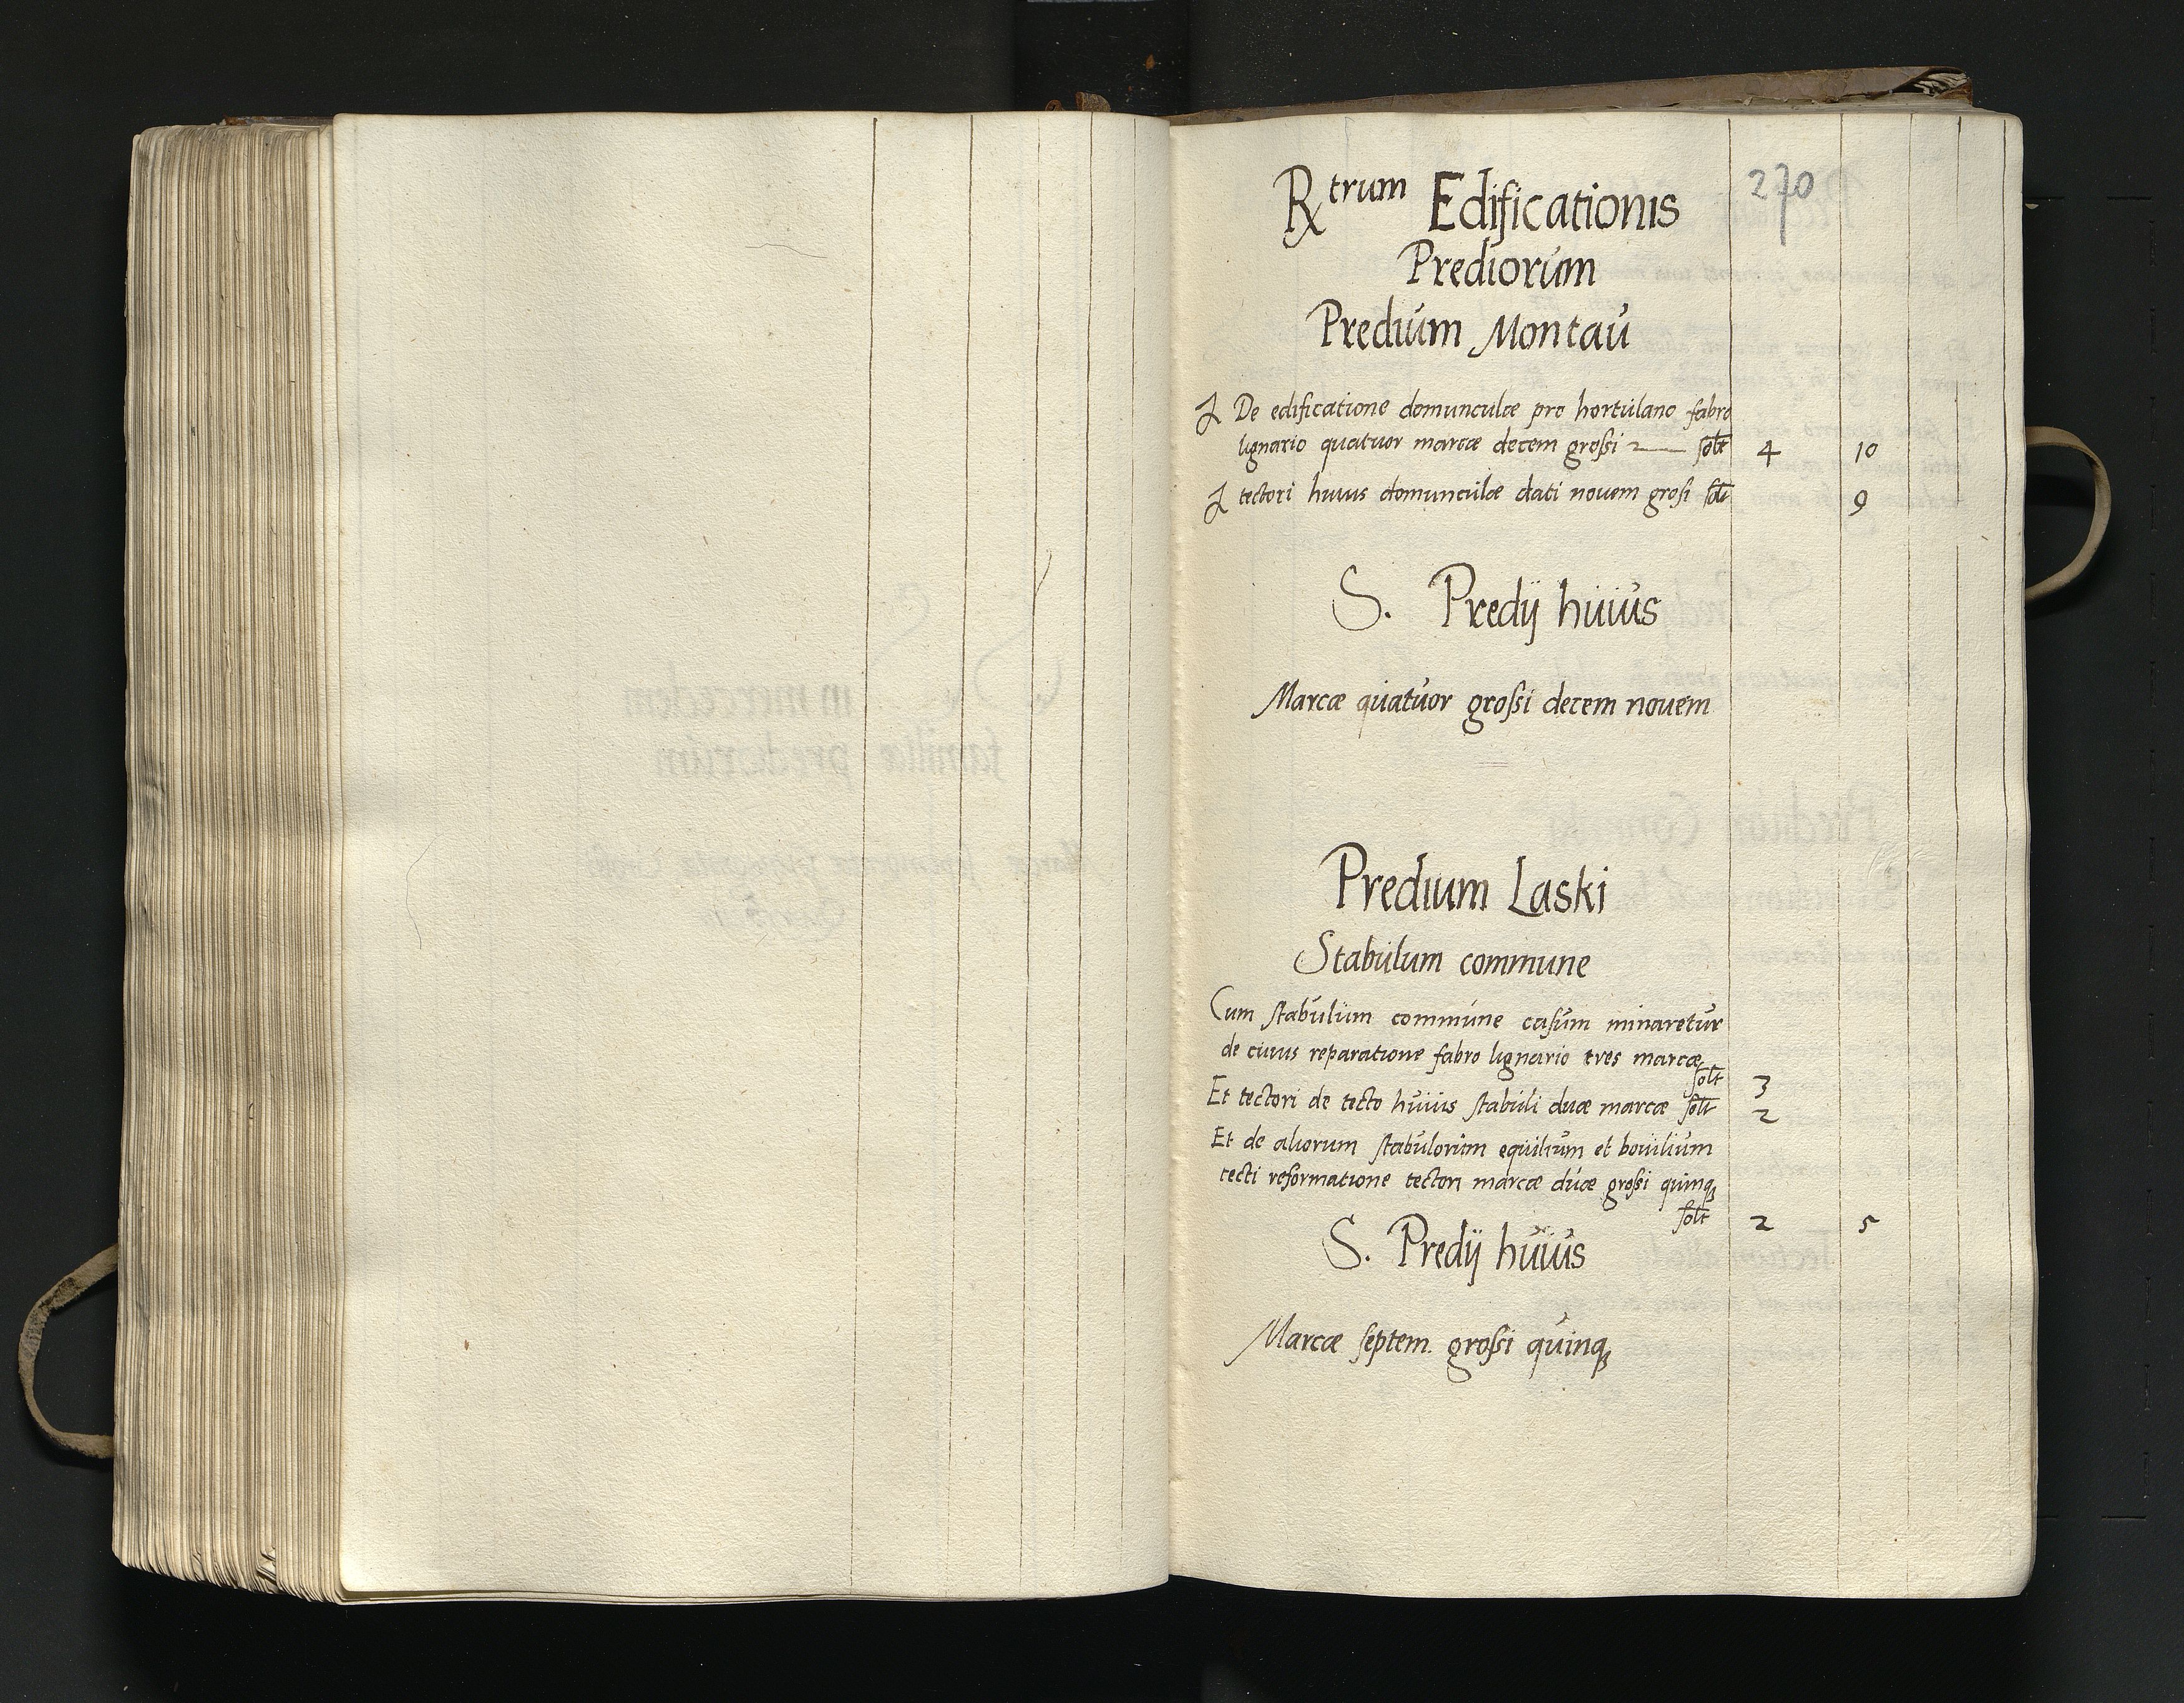 270
Rtrum Edificationis
Prediorum
Predium Montau
De edificatione domunculæ pro hortulano fabro
lignario quatuor marcæ decem grossi solt 4 10
tectori huius domunculæ dati novem grosi solt 9
S. Predij huius
Marcæ quatuor grossi decem novem
Predium Laski
Stabulum commune
Cum stabulum commune casum minaretur
de cuius reparatione fabro lignario tres marcæ
solt 3
Et tectori de tecto huius stabuli duæ marcæ solt 2
Et de aliorum stabulorum equilium et bovilium
tecti reformatione tectori marcæ duæ grossi quinq
solt 2 5
S. Predij huius
Marcæ septem. grossi quinq